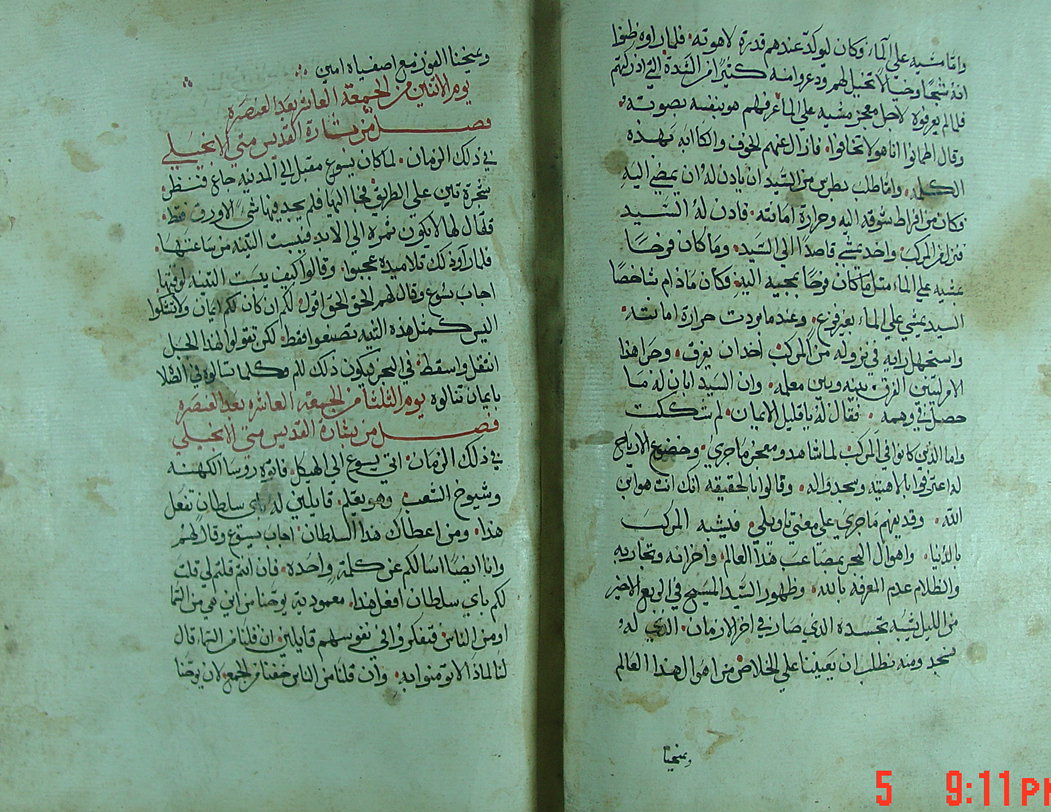 وامّا مشيه على الماء وكان ليوكد عندهم قدرة لاهوته فلما راوه ظنوا
انه شبحًا وخيالًا تخيل لهم ودعروا منه كثيرًا من الشدة التي ادركتهم
فلما لم يعرفوه لاجل معجز مشيه على الماء عرفهم هو بنفسه بصوته
وقال اطمانوا انا هو لا تخافوا فازال عنهم الخوف والكابه بهذه
الكلمه وامّا طلب بطرس من السّيد ان ياذن له ان يمضي اليه
فكان من افراط شوقه اليه وحرارة امانته فاذن له السّيد
فنزل من المركب واخذ يمشي قاصدًا الى السّيد وما كان فرحًا
بمشيه على الماء مثل ما كان فرحًا بمجيه اليه وكان مادام شاخصًا
السيد يمشي على الماء بغير فزع وعندما بردت حرارة امانته
واستجهل رايه في نزوله من المركب اخذ ان يغرق وجرا هذا
الامر ليتبين الفرق بينه وبين معلمه وان السّيد ابان له ما
حصل في وهمه فقال له يا قليل الايمان لم شككت
واما الذين كانوا في المركب لما شاهدو معجز ما جرى وخضوع الارياح
له اعترفوا بالاهيته وسجدوا له وقالوا بالحقيقه انك انت هو ابن
الله وقد يفهم ما جرى على معنى تاويلي فيشبه المركب
بالدنيا واهوال البحر بمصاعب هذا العالم واحزانه وتجاربه
والظلام عدم المعرفة بالله وظهور السّيد المسيح في الربع الاخير
من الليل شبه تجسده الذي صار في اخر الازمان الذي له
نسجد ومنه نطلب ان يعيننا على الخلاص من اهوال هذا العالم
ويمنحنا
ويمنحنا الفوز مع اصفياه امين
يوم الاثنين من الجمعة العاشره بعد العنصره
فصل من بشارة القديس متى الانجيلي
في ذلك الزمان لما كان يسوع مقبل الى المدينه جاع فنظر
شجرة تين على الطريق فجا اليها فلم يجد فيها شي الا ورق فقط
فقال لها لا يكون ثمره الى الابد فيبست التينه من ساعتها
فلما راو ذلك تلاميذه عجبوا وقالوا كيف يبست التينه لوقتها
اجاب يسوع وقال لهم الحق الحق اقول لكم ان كان لكم ايمان ولا تشكوا
ليس كمثل هذه التينه تصنعوا فقط لكن تقولوا لهذا الجبل
انتقل واسقط في البحر فيكون ذلك لكم وكلما سالتوه في الصلاه
بايمان تنالوه يوم الثلثا من الجمعة العاشره بعد العنصره
فصل من بشارة القديس متى الانجيلي
في ذلك الزمان اتى يسوع الى الهيكل فاتوه روسا الكهنه
وشيوخ الشعب وهو يعلم قايلين له باي سلطان تفعل
هذا ومن اعطاك هذا السلطان اجاب يسوع وقال لهم
وانا ايضًا اسالكم عن كلمة واحدة فان انتم قلتم لي قلت
لكم باي سلطان افعل هذا معمودية يوحنا من اين هي من السّما
او من الناس فتفكروا في نفوسهم قايلين ان قلنا من السّما قال
لنا لماذا لا تومنوا به وان قلنا من الناس خفنا من الجمع لان يوحنا
5 9:11 PM